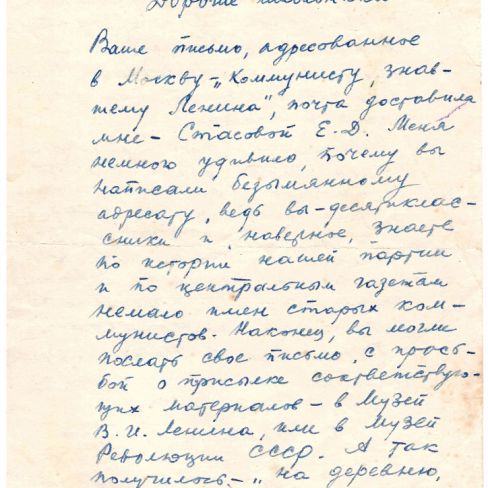 Дорогие школьники
Ваше письмо, адресованное
в Москву – „Коммунисту, знав-
шему Ленина", почта доставила
мне – Стасовой Е. Д. Меня
немного удивило, почему вы
написали безымянному
адресату, ведь вы – десятиклас-
сники и, наверное, знаете
по истории нашей партии
и по центральным газетам
немало имен старых ком-
мунистов. Наконец, вы могли
послать свое письмо, с прось-
бой о присылке соответствую-
щих материалов – в Музей
В. И. Ленина, или в Музей
Революции СССР. А так
получилось – „на деревню,